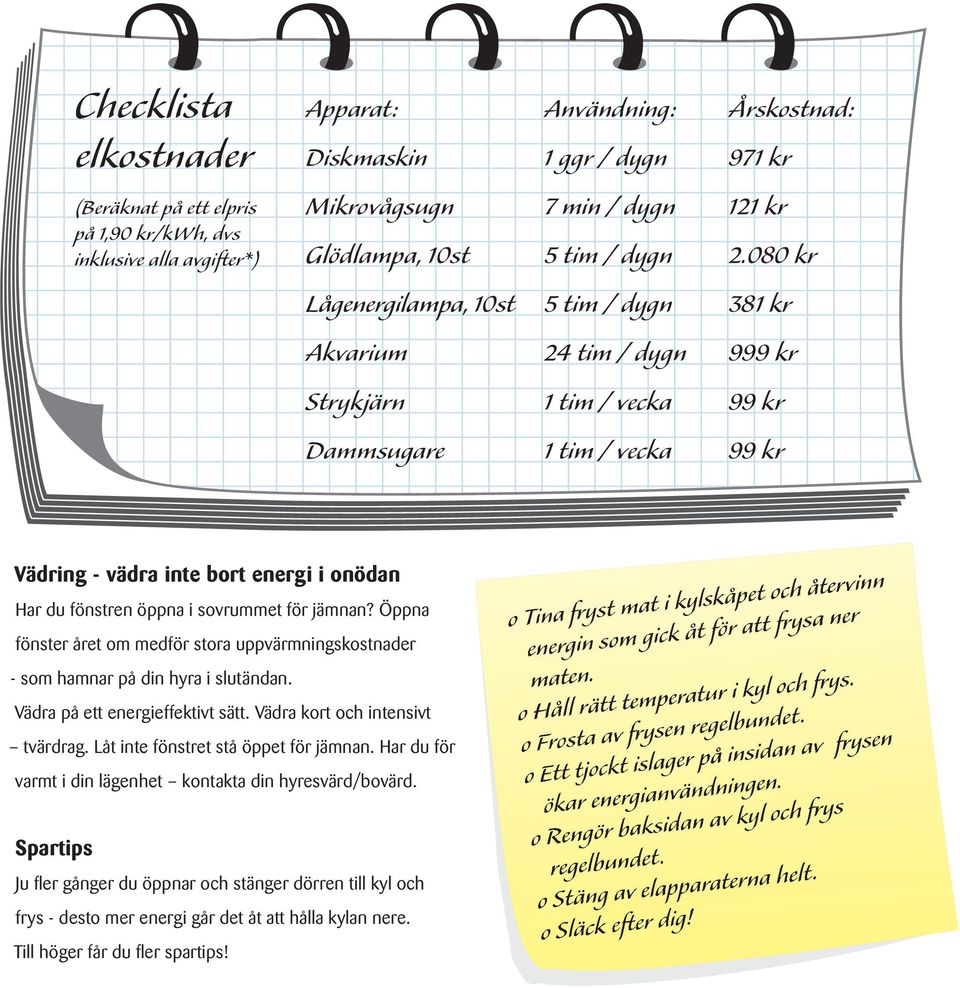 Checklista
elkostnader
(Beräknat på ett elpris
på 1,90 kr/kWh, dvs
inklusive alla avgifter*)
Apparat: Användning: Årskostnad:
Diskmaskin 1 ggr / dygn 971 kr
Mikrovågsugn 7 min / dygn 121 kr
Glödlampa, 10st 5 tim / dygn 2.080 kr
Lågenergilampa, 10st 5 tim / dygn 381 kr
Akvarium 24 tim / dygn 999 kr
Strykjärn 1 tim / vecka 99 kr
Dammsugare 1 tim / vecka 99 kr
Vädring - vädra inte bort energi i onödan
Har du fönstren öppna i sovrummet för jämnan? Öppna
fönster året om medför stora uppvärmningskostnader
- som hamnar på din hyra i slutändan.
Vädra på ett energieffektivt sätt. Vädra kort och intensivt
– tvärdrag. Låt inte fönstret stå öppet för jämnan. Har du för
varmt i din lägenhet – kontakta din hyresvärd/bovärd.
Spartips
Ju fler gånger du öppnar och stänger dörren till kyl och
frys - desto mer energi går det åt att hålla kylan nere.
Till höger får du fler spartips!
o Tina fryst mat i kylskåpet och återvinn
energin som gick åt för att frysa ner
maten.
o Håll rätt temperatur i kyl och frys.
o Frosta av frysen regelbundet.
o Ett tjockt islager på insidan av frysen
ökar energianvändningen.
o Rengör baksidan av kyl och frys
regelbundet.
o Stäng av elapparaterna helt.
o Släck efter dig!